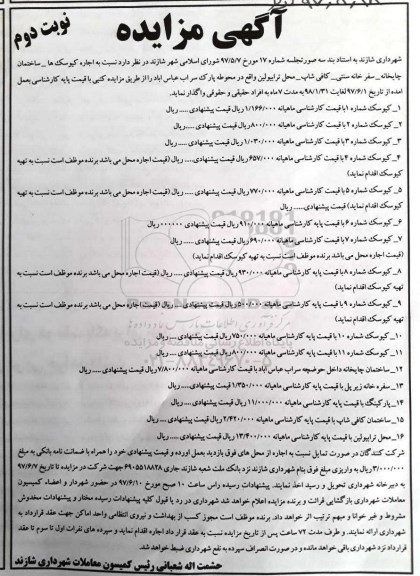 آگهی مزایده
نوبت دوم
شهرداری شازند به استناد بند سه صورتجلسه شماره ۱۷ مورخ ۹۷/۵/۷ شورای اسلامی شهر شازند در نظر دارد نسبت به اجاره کیوسک ها _ ساختمان
چایخانه_ سفر خانه سنتی_ کافی شاپ_ محل ترامپولین واقع در محوطه پارک سراب عباس اباد را از طریق مزایده کتبی با قیمت پایه کارشناسی بعمل
امده از تاریخ ۹۷/۶/۱ لغایت ۹۸/۱/۳۱ به مدت ۷ ماه به افراد حقیقی و حقوقی واگذار نماید.
۱_ کیوسک شماره ۱ با قیمت کارشناسی ماهیانه ۱/۱۶۶/۰۰۰ ریال قیمت پیشنهادی ..... ریال
۲_ کیوسک شماره ۲ با قیمت کارشناسی ماهیانه ۸۰۰/۰۰۰ ریال قیمت پیشنهادی ..... ریال
۳_ کیوسک شماره ۳ با قیمت کارشناسی ماهیانه ۱/۰۳۰/۰۰۰ ریال قیمت پیشنهادی ..... ریال
۴_ کیوسک شماره ۴ با قیمت کارشناسی ماهیانه ۶۵۷/۰۰۰ ریال قیمت پیشنهادی ..... ریال (قیمت اجاره محل می باشد برنده موظف است نسبت به تهیه
کیوسک اقدام نماید)
۵_ کیوسک شماره ۵ با قیمت پایه کارشناسی ماهیانه ۷۷۰/۰۰۰ ریال قیمت پیشنهادی ..... ریال (قیمت اجاره محل می باشد برنده موظف است نسبت به تهیه
کیوسک اقدام نماید) قیمت پیشنهادی ..... ریال
۶_ کیوسک شماره ۶ با قیمت پایه کارشناسی ماهیانه ۹۱۰/۰۰۰ ریال قیمت پیشنهادی
۷_ کیوسک شماره ۷ با قیمت پایه کارشناسی ماهیانه ۶۹۰/۰۰۰ ریال قیمت پیشنهادی ..... ریال
(قیمت اجاره محل می باشد برنده موظف است نسبت به تهیه کیوسک اقدام نماید)
۸_ کیوسک شماره ۸ با قیمت پایه کارشناسی ماهیانه ۹۳۰/۰۰۰ ریال قیمت پیشنهادی ..... ریال (قیمت اجاره محل می باشد برنده موظف است نسبت به
تهیه کیوسک اقدام نماید)
۹_ کیوسک شماره ۹ با قیمت پایه کارشناسی ماهیانه ۵۰۰/۰۰۰ ریال قیمت پیشنهادی ..... ریال (قیمت اجاره محل می باشد برنده موظف است نسبت به
تهیه کیوسک اقدام نماید)
۱۰_ کیوسک شماره ۱۰ با قیمت پایه کارشناسی ماهیانه ۷۵۰/۰۰۰ ریال قیمت پیشنهادی ..... ریال
۱۱_ کیوسک شماره ۱۱ با قیمت پایه کارشناسی ماهیانه ۸۰۰/۰۰۰ ریال قیمت پیشنهادی ..... ریال
۱۲_ ساختمان چایخانه داخل حوضچه سراب عباس اباد با قیمت پایه کارشناسی ماهیانه ۷/۸۰۰/۰۰۰ ریال قیمت پیشنهادی .... ریال
۱۳_ سفره خانه زیر پل با قیمت پایه کارشناسی ماهیانه ۱/۳۵۰/۰۰۰ ریال قیمت پیشنهادی ..... ریال
۱۴_ پارکینگ با قیمت پایه کارشناسی ماهیانه ۱۱/۰۰۰/۰۰۰ ریال قیمت پیشنهادی ..... ریال
۱۵_ ساختمان کافی شاپ با قیمت پایه کارشناسی ماهیانه ۲/۴۲۰/۰۰۰ ریال قیمت پیشنهادی ..... ریال
۱۶_ محل ترامپولین با قیمت پایه کارشناسی ماهیانه ۱۳/۴۰۰/۰۰۰ ریال قیمت پیشنهادی ..... ریال
شرکت کنندگان در صورت تمایل نسبت به اجاره از محل های فوق بازدید بعمل اورده و قیمت پیشنهادی خود را همراه با ضمانت نامه بانکی به مبلغ
۳/۰۰۰/۰۰۰ ریال به واریزی مبلغ فوق بنام شهرداری شازند نزد بانک ملت شعبه شازند جاری ۶۹۰۵۵۱۸۸۲۸ جهت شرکت در مزایده تا تاریخ ۹۷/۶/۷
به دبیرخانه شهرداری تحویل و رسید اخذ نمایند. پیشنهادات رسیده راس ساعت ۱۰ صبح مورخ ۹۷/۶/۱۰ در حضور شهردار و اعضاء کمیسیون
معاملات شهرداری بازگشایی قرائت و برنده مزایده اعلام خواهد شد شهرداری در رد یا قبول کلیه پیشنهادات رسیده مختار و پیشنهادات مخدوش
مشروط و غیر خوانا و مبهم ترتیب اثر خواهد داد. برنده موظف است مجوز کسب از بهداشت و نیروی انتظامی واحد اماکن جهت عقد قرارداد به
شهرداری ارائه نمایند. و ظرف مدت ۷۲ ساعت پس از تاریخ مزایده نسبت به عقد قرار داد اقدام نماید و سپرده های نفرات اول تا سوم تا عقد
قرارداد نزد شهرداری باقی خواهد مانده و در صورت انصراف سپرده به نفع شهرداری ضبط خواهد شد.
حشمت اله شعبانی رئیس کمیسیون معاملات شهرداری شازند